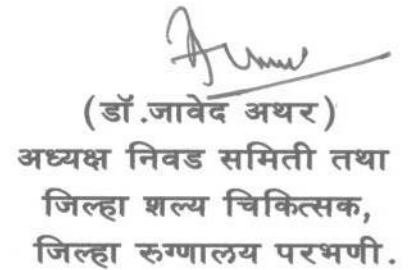 (डॉ.जावेद अथर)
अध्यक्ष निवड समिती तथा
जिल्हा शल्य चिकित्सक,
जिल्हा रुग्णालय परभणी.